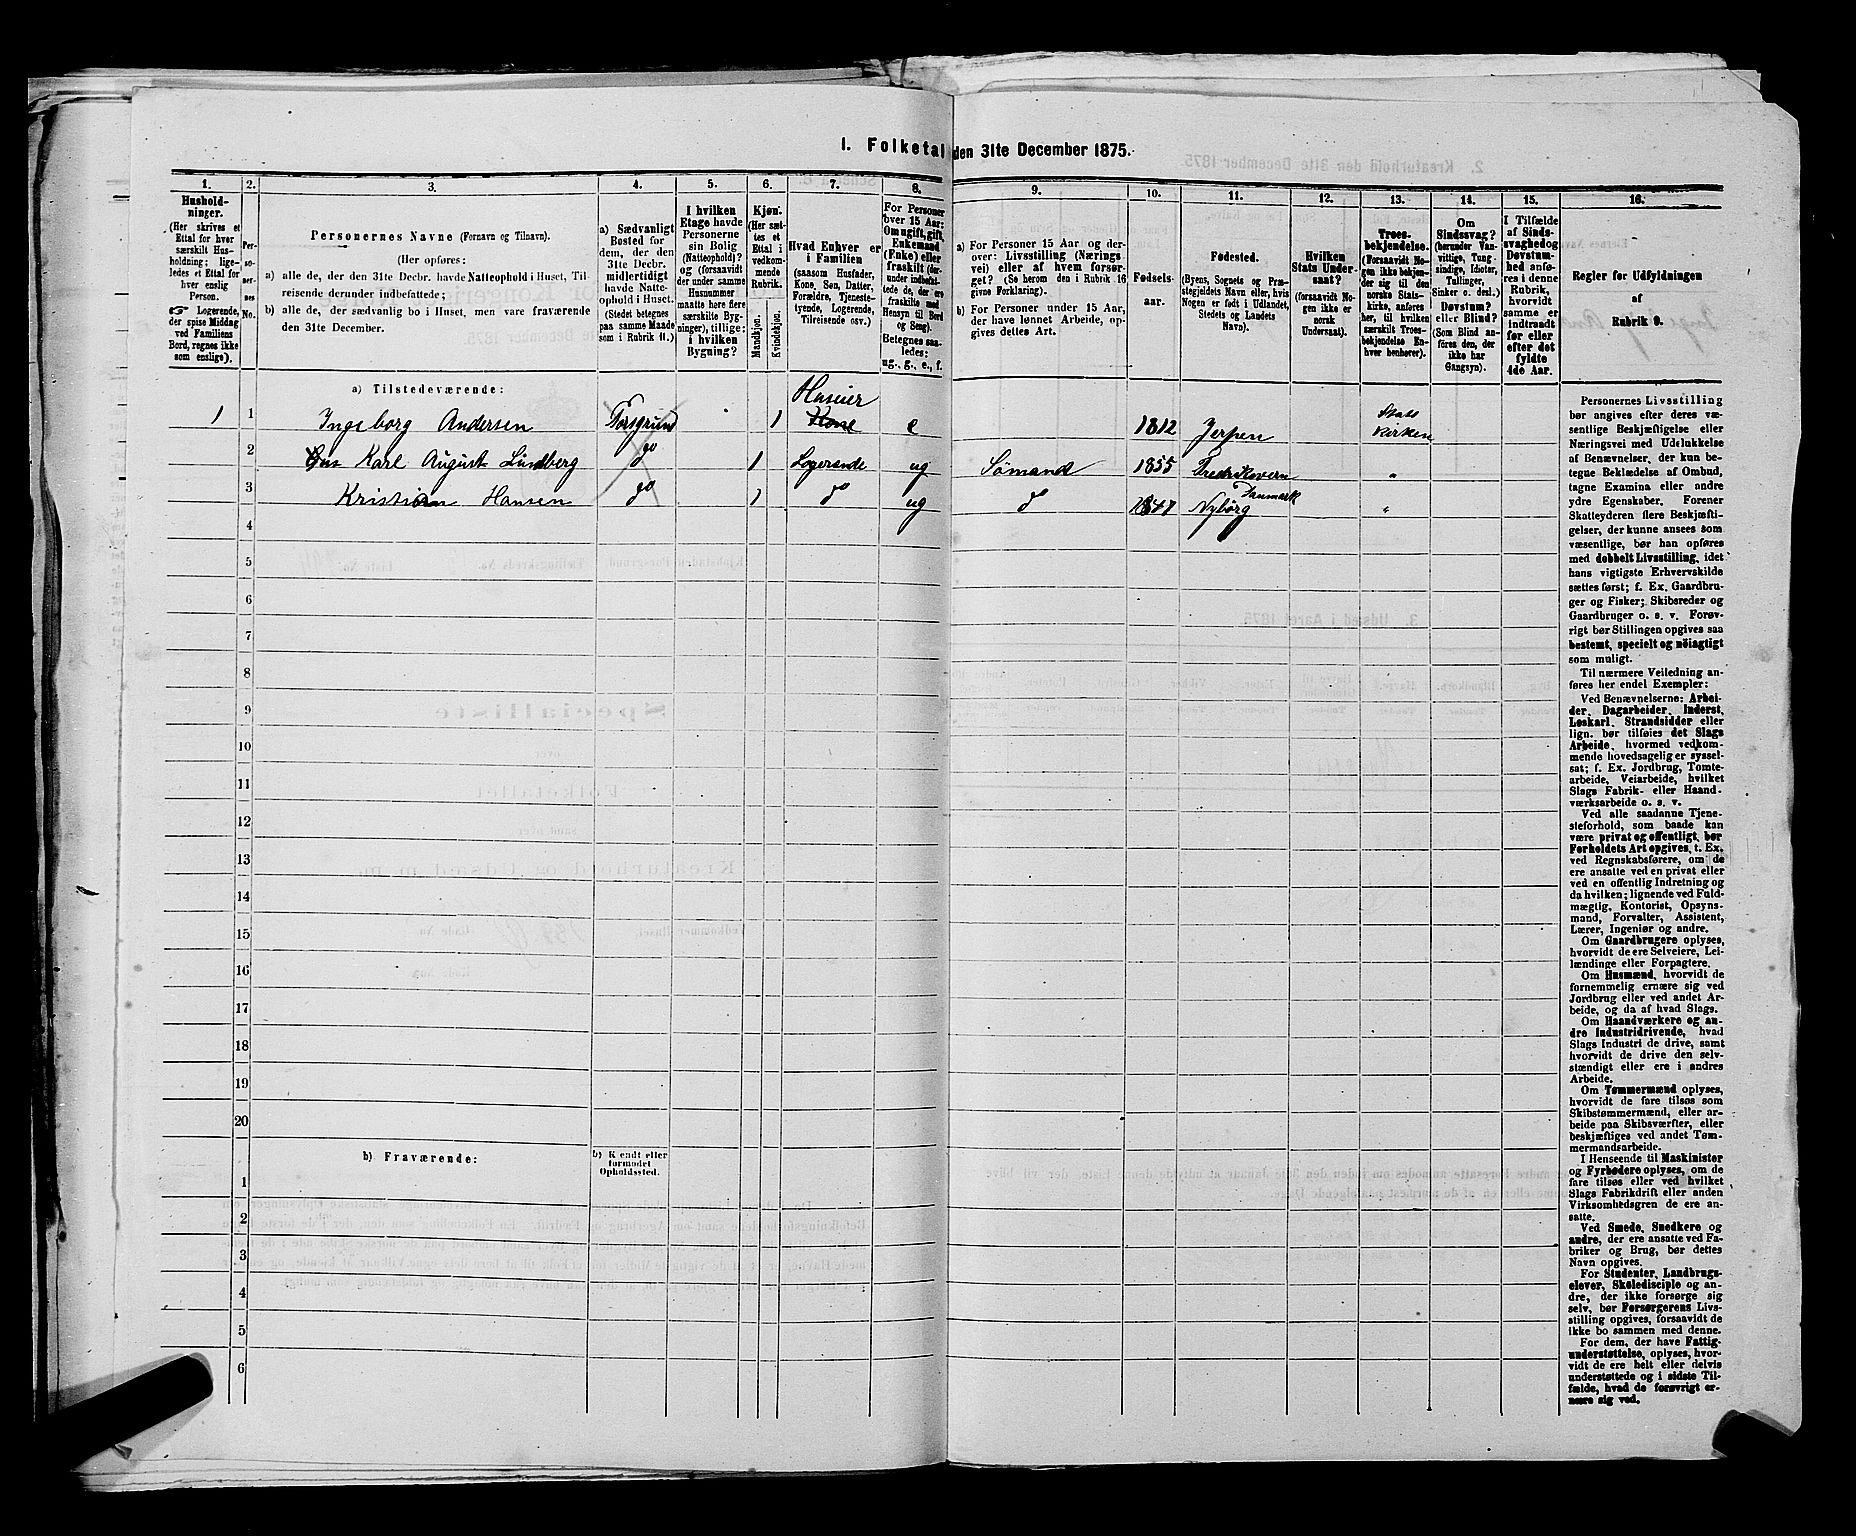 I. Folketal den 31te December 1875.
1. 2. 3. 4. 5. 6. 7. 8. 9. 10. 11. 12. 13. 14. 15. 16.
Hushold-
ninger.
(Her skrives et
Ettal for hver
særskilt Hus-
holdning; lige-
ledes et Ettal for
hver enslig
Person.
☞ Logerende,
der spise Middag
ved Familiens
Bord, regnes ikke
som enslige).
Per-
soner-
nes
No.
Personernes Navne (Fornavn og Tilnavn).
(Her opføres:
a) alle de, der den 31te Decbr. havde Natteophold i Huset, Til-
reisende derunder indbefattede;
b) alle de, der sædvanlig bo i Huset, men vare fraværende
den 31te December.
a) Sædvanligt
Bosted for
dem, der den
31te Decbr.
midlertidigt
havde Natte-
ophold i Huset.
(Stedet betegnes
paa samme Maade
som i Rubrik 11.)
I hvilken
Etage havde
Personerne
sin Bolig
(Natteophold)?
og (forsaavidt
der under samme
Husnummer
maatte høre flere
særskilte Byg-
ninger), tillige:
i hvilken
Bygning?
Kjøn.
(Her sæt-
tes et
Ettal i
vedkom-
mende
Rubrik.
Mandkjøn.
Kvindekjøn.
Hvad Enhver er
i Familien
(saasom Husfader,
Kone, Søn, Datter,
Forældre, Tjeneste-
tyende, Logerende,
Tilreisende osv.)
For Personer
over 15 Aar:
Om ugift, gift,
Enkemand
(Enke) eller
fraskilt (der-
under indbefat-
tede de, der ere
fraskilte med
Hensyn til Bord
og Seng).
Betegnes saa-
ledes:
ug., g., e., f.
a) For Personer 15 Aar og der-
over: Livsstilling (Nærings-
vei) eller af hvem forsør-
get? (Se herom den i Rubrik 16
givne Forklaring).
b) For Personer under 15 Aar,
der have lønnet Arbeide, op-
gives dettes Art.
Fødsels-
aar.
Fødested.
(Byens, Sognets og Præ-
stegjeldets Navn eller, hvis
Nogen er født i Udlandet,
Stedets og Landets
Navn).
Hvilken
Stats Under-
saat?
(forsaavidt No-
gen ikke er
norsk
Undersaat).
Troes-
bekjendelse.
(Forsaavidt No-
gen ikke bekjen-
der sig til den
norske Stats-
kirke, anføres
her, til hvilken
særskilt Troes-
bekjendelse En-
hver henhører).
Om
Sindssvag?
(herunder Van-
vittige, Tung-
sindige, Idioter,
Tullinger,
Sinker o. desl.)
Døvstum?
eller Blind?
(Som Blind an-
føres den, der
ikke har
Gangsyn).
I Tilfælde
af Sinds-
svaghed og
Døvstum-
hed anfø-
res i denne
Rubrik,
hvorvidt
samme er
indtraadt
før eller
efter det
fyldte
4de Aar.
Regler for Udfyldningen
af
Rubrik 9.
a) Tilstedeværende:
1 1 Ingeborg Andersen Porsgrund 1 Huseier Kone e 1812 Jerpen Stats Kirken
2 Karl August Lundberg do 1 Logerande ug Sømand 1855 Fredriksvern "
3 Kristian Hansen do 1 do ug do 1847 Nybørg Danmark "
4
5
6
7
8
9
10
11
12
13
14
15
16
17
18
19
20
b) Fraværende:
b) Kjendt eller
formodet
Opholdssted.
1
2
3
4
5
6
Personernes Livsstilling
bør angives efter deres væ-
sentlige Beskjæftigelse eller
Næringsvei med Udelukkelse
af Benævnelser, der kun be-
tegne Beklædelse af Ombud,
tagne Examina eller andre
ydre Egenskaber. Forener
Skatteyderen flere Beskjæfti-
gelser, der kunne ansees som
væsentlige, bør han opføres
med dobbelt Livsstilling, idet
hans vigtigste Erhvervskilde
sættes først; f. Ex. Gaardbru-
ger og Fisker; Skibsreder og
Gaardbruger o. s. v. Forøv-
rigt bør Stillingen opgives saa
bestemt, specielt og nøiagtigt
som muligt.
Til nærmere Veiledning an-
føres her endel Exempler:
Ved Benævnelserne: Arbei-
der, Dagarbeider, Inderst,
Løskarl, Strandsidder eller
lign. bør tilføies det Slags
Arbeide, hvormed vedkom-
mende hovedsagelig er syssel-
sat; f. Ex. Jordbrug, Tomte-
arbeide, Veiarbeide, hvilket
Slags Fabrik- eller Haand-
værksarbeide o. s. v.
Ved alle saadanne Tjene-
steforhold, som baade kan
være privat og offentligt, bør
Forholdets Art opgives, t. Ex.
ved Regnskabsførere, om de
ere ansatte ved en privat eller
ved en offentlig Indretning og
da hvilken; lignende ved Fuld-
mægtig, Kontorist, Opsyns-
mand, Forvalter, Assistent,
Lærer, Ingeniør og andre.
Om Gaardbrugere oplyses,
hvorvidt de ere Selveiere, Lei-
lændinge eller Forpagtere.
Om Husmænd, hvorvidt de
fornemmelig ernære sig ved
Jordbrug eller ved andet Ar-
beide, og da af hvad Slags.
Om Haandværkere og an-
dre Industridrivende, hvad
Slags Industri de drive, samt
hvorvidt de drive den selv-
stændigt eller ere i andres
Arbeide.
Om Tømmermænd oplyses,
hvorvidt de fare tilsøs som
Skibstømmermænd, eller ar-
beide paa Skibsværfter, eller
beskjæftiges ved andet Tøm-
mermandsarbeide.
I Henseende til Maskinister
og Fyrbødere oplyses, om de
fare tilsøs eller ved hvilket
Slags Fabrikdrift eller anden
Virksomhedsgren de ere an-
satte.
Ved Smede, Snedkere og
andre, der ere ansatte ved Fa-
briker og Brug, bør dettes
Navn opgives.
For Studenter, Landbrugs-
elever, Skoledisciple og an-
dre, der ikke forsørge sig
selv, bør Forsørgerens Livs-
stilling opgives, forsaavidt de
ikke bo sammen med denne.
For dem, der have Fattig-
understøttelse, oplyses, hvor-
vidt de ere helt eller delvis
understøttede og i sidste Til-
fælde, hvad de forøvrigt er-
nære sig ved.